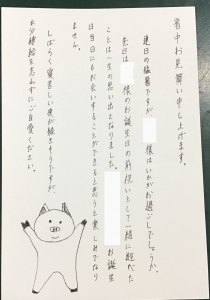 暑中お見舞い申し上げます。
連日の猛暑ですが 様はいかがお過ごしでしょうか。
先日は 様のお誕生日の前祝いとして一緒に
ことは一生の思い出となりました。 お誕生
日当日にもお会いすることができると思うと楽しみでなり
ません。
しばらく寝苦しい夜が続きそうですが、
水分補給を忘れずにご自愛ください。